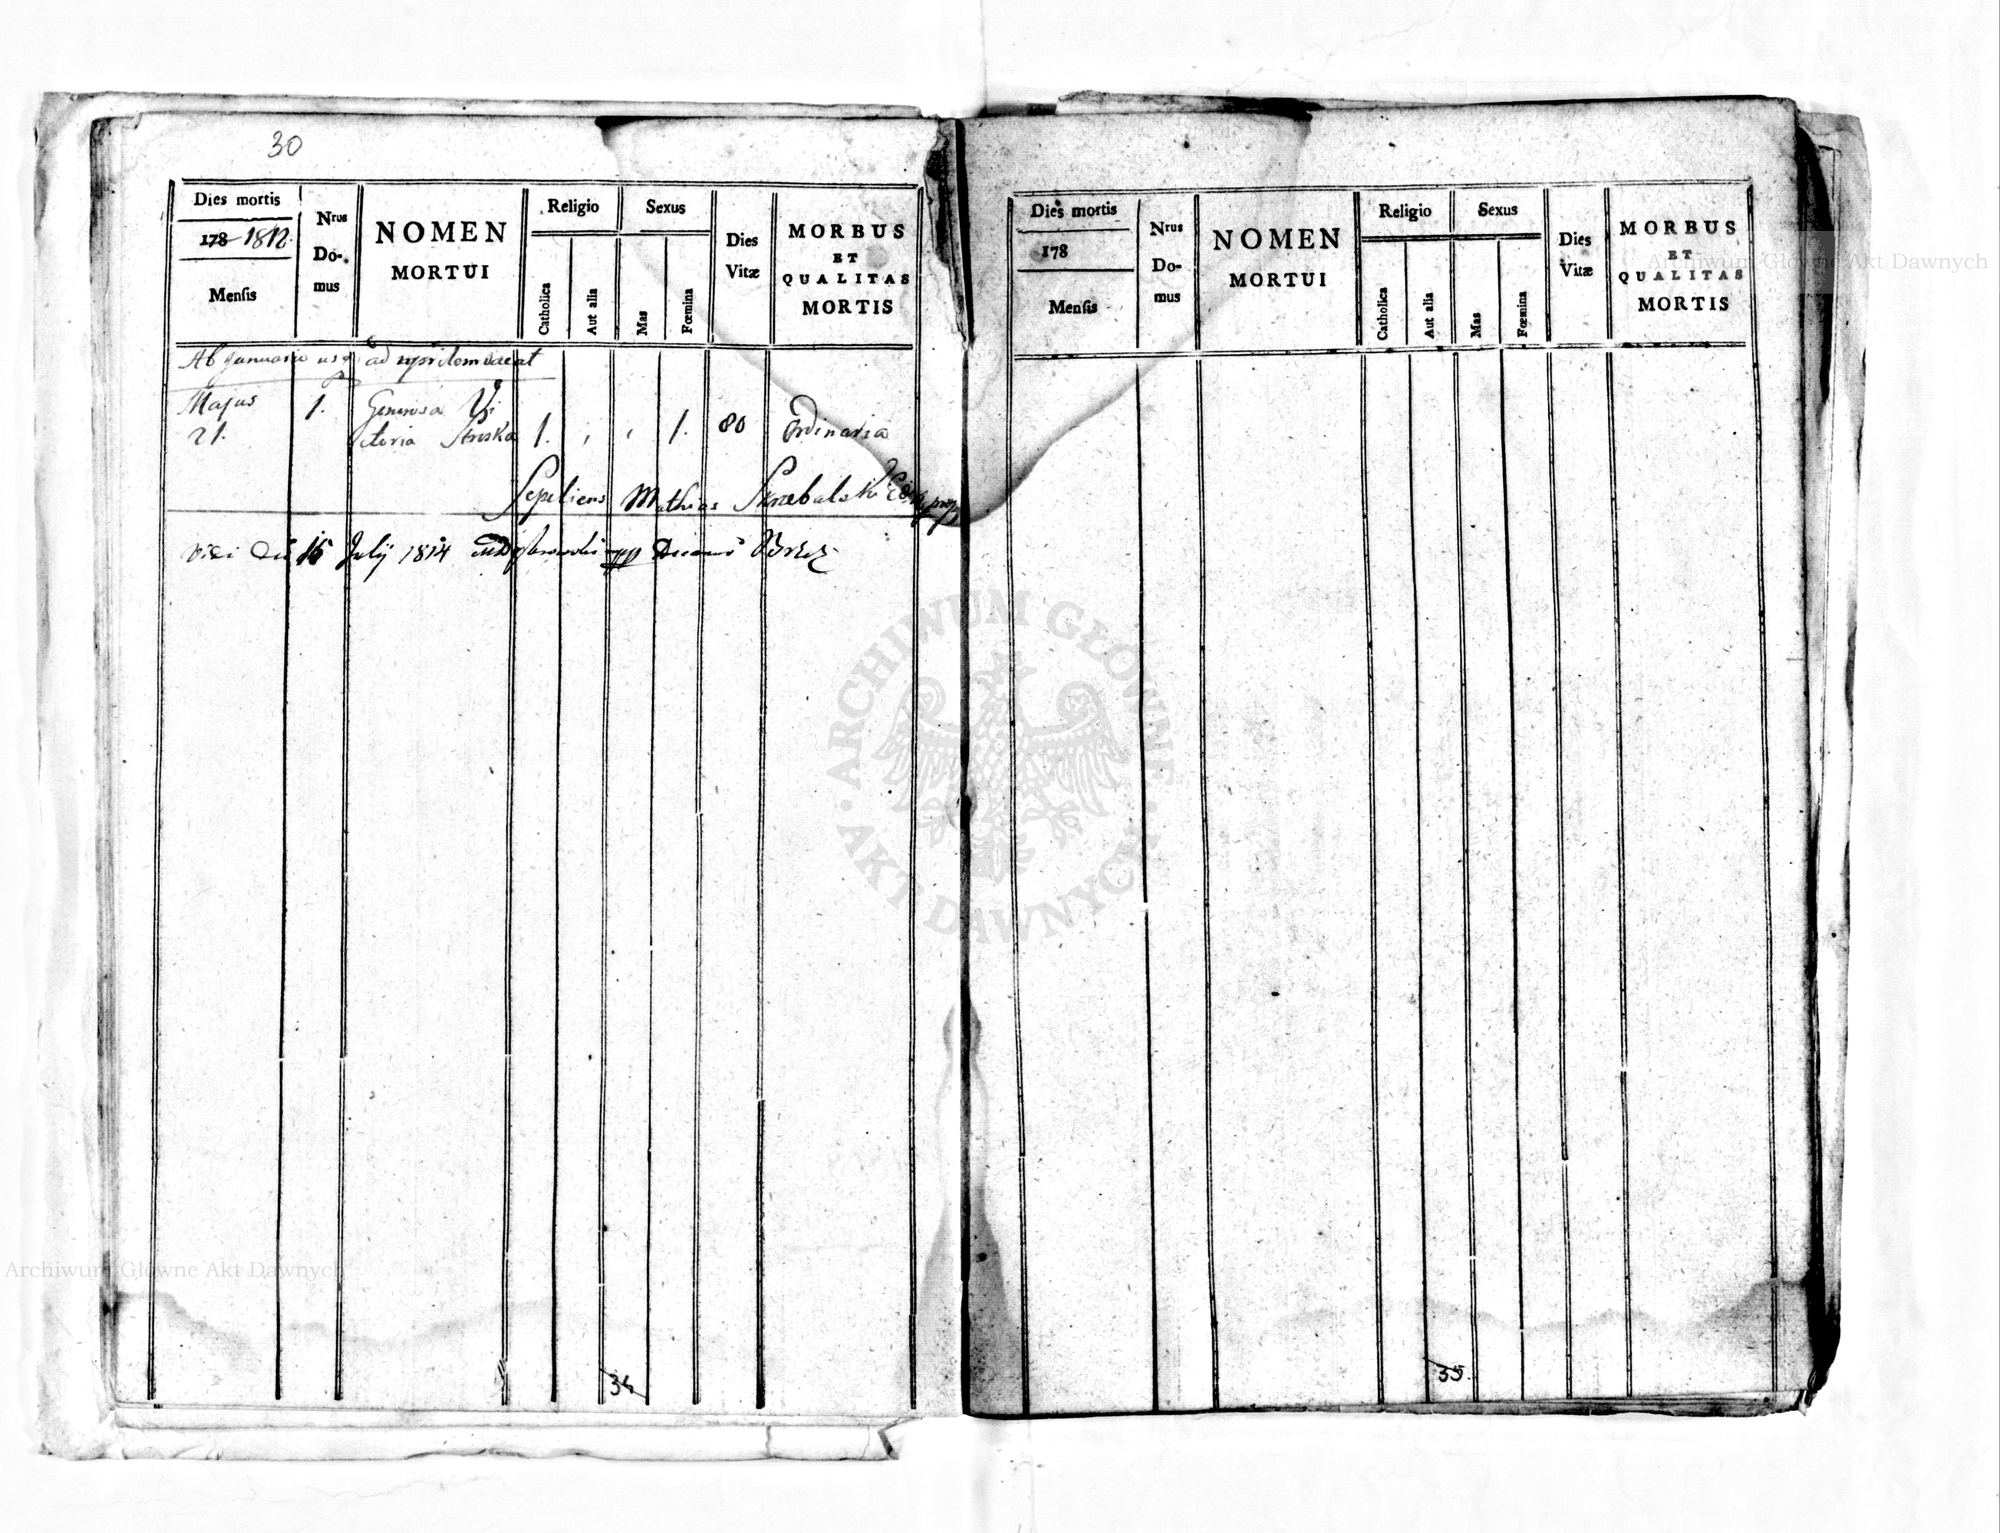 30
Dies mortis
178 1812.
Mensis
Nrus
Do-
mus
NOMEN
MORTUI
Religio
Catholica
Aut alia
Sexus
Mas
Fœmina
Dies
Vitæ
MORBUS
ET
QUALITAS
MORTIS
Ab Januario usq ad vacat
Majus 1. Generosa Vi
21. ctoria 1. , , 1. 80 Ordinaria
Sepeliens Mathias
Vidi Die 15 July 1814
34
Dies mortis
178
Mensis
Nrus
Do-
mus
NOMEN
MORTUI
Religio
Catholica
Aut alia
Sexus
Mas
Fœmina
Dies
Vitæ
MORBUS
ET
QUALITAS
MORTIS
35.
ARCHIWUM GŁÓWNE
AKT DAWNYCH
Archiwum Główne Akt Dawnych
Archiwum Główne Akt Dawnych